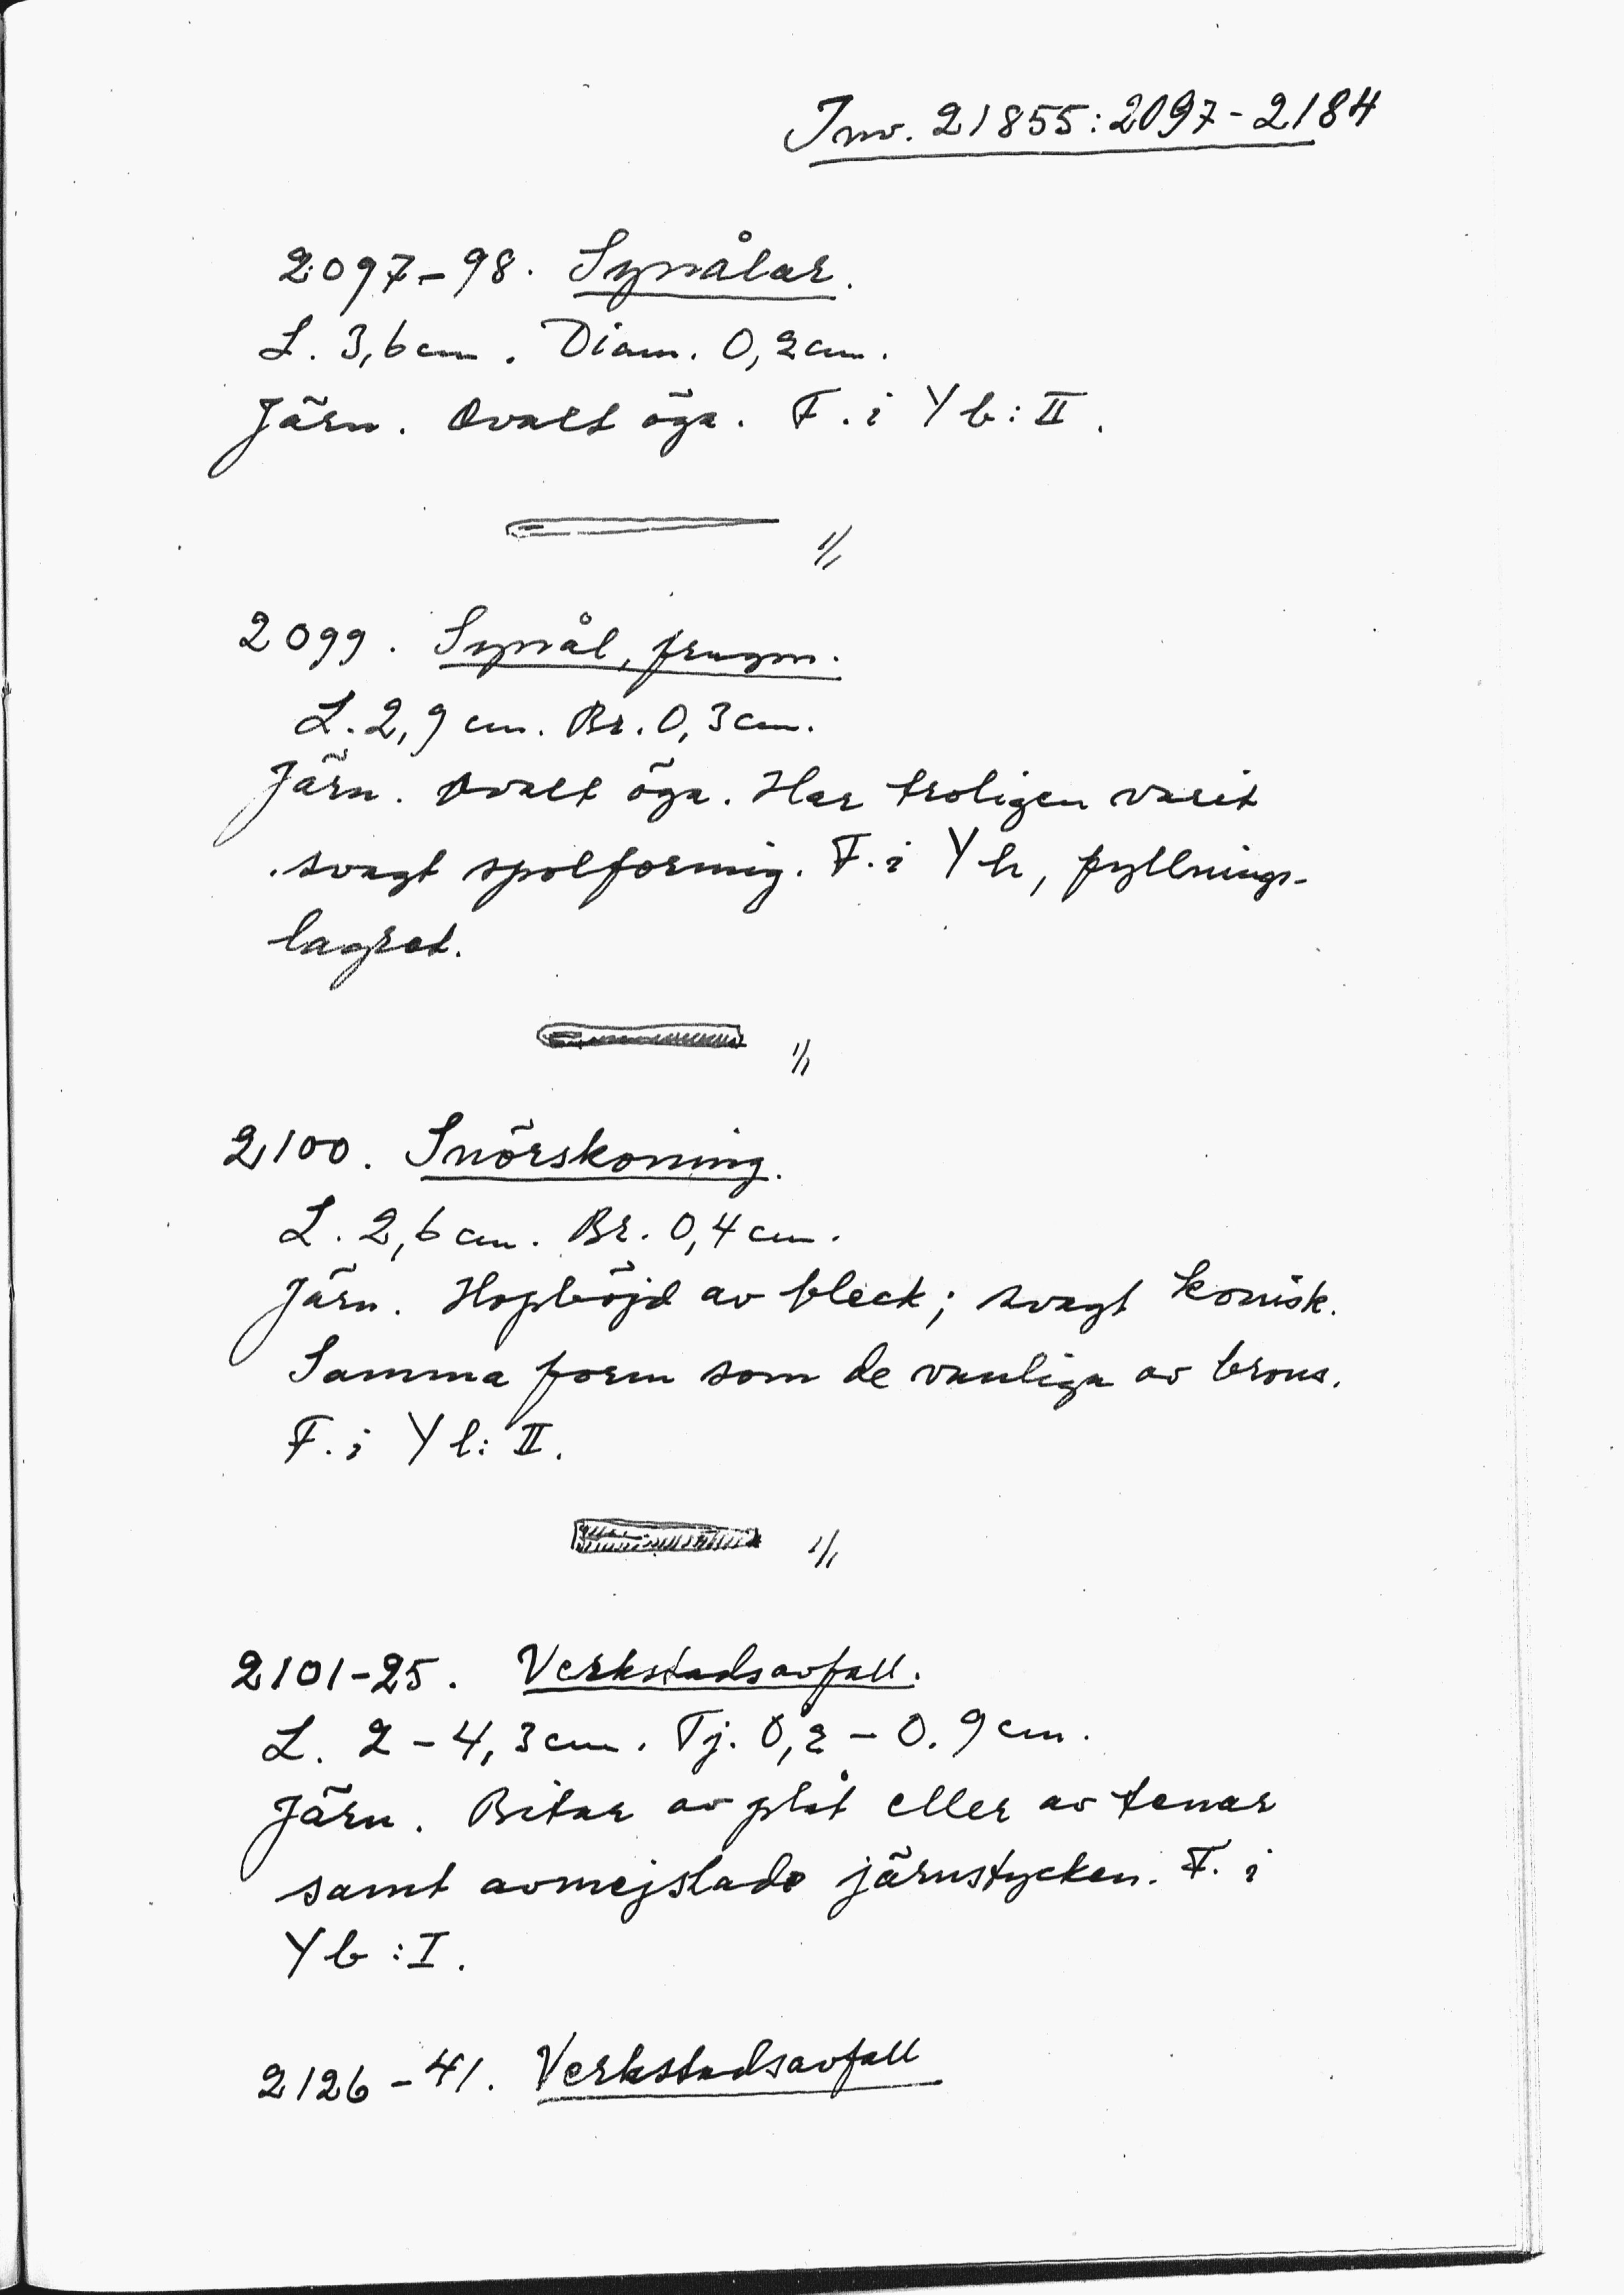 Inv. 21855:2097-2184
2097-98. Synålar.
L. 3,6 cm. Diam. 0,2 cm.
Järn. Ovalt öga. F. i Y b:II.
1/1
2099. Synål, fragm.
L. 2,9 cm. Br. 0,3 cm.
Järn. Ovalt öga. Har troligen varit
svagt spolformig. F. i Y h, fyllnings-
lagret.
1/1
2100. Snörskoning.
L. 2,6 cm. Br. 0,4 cm.
Järn. Hopböjd av bleck; svagt konisk.
Samma form som de vanliga av brons.
F. i Y l: II.
1/1
2101-25. Verkstadsavfall.
L. 2-4,3 cm. Tj. 0,2-0.9 cm.
Järn. Bitar av plåt eller av tenar
samt avmejslade järnstycken. F. i
Y b:I.
2126-41. Verkstadsavfall